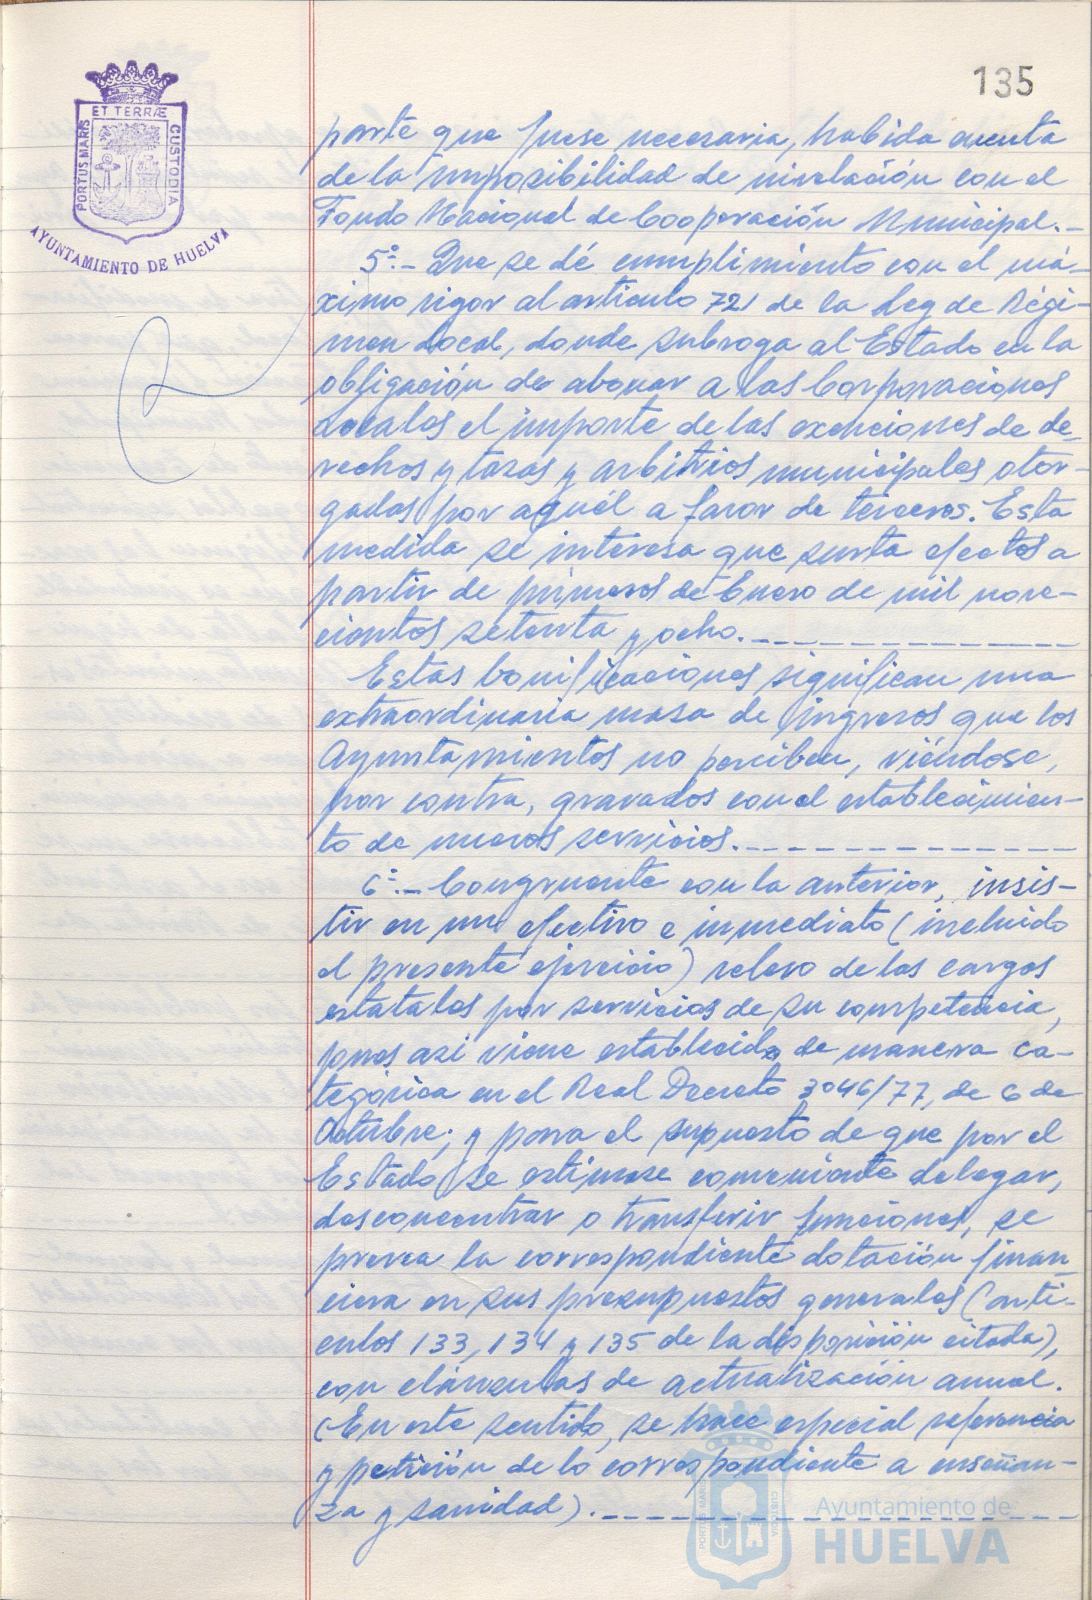 135
ET TERRÆ
PORTUS MARIS
CUSTODIA
AYUNTAMIENTO DE HUELVA
parte que fuese necesaria, habida cuenta
de la imposibilidad de nivelación con el
Fondo Nacional de Cooperación Municipal.-
5º.- Que se dé cumplimiento con el má-
ximo rigor al artículo 721 de la Ley de Régi-
men Local, donde subroga al Estado en la
obligación de abonar a las Corporaciones
Locales el importe de las exenciones de de-
rechos y tasas y arbitrios municipales otor-
gados por aquél a favor de terceros. Esta
medida se interesa que surta efectos a
partir de primeros de Enero de mil nove-
cientos setenta y ocho.---------
Estas bonificaciones significan una
extraordinaria masa de ingresos que los
Ayuntamientos no perciben, viéndose,
por contra, gravados con el establecimien-
to de nuevos servicios.----------
6º.- Congruente con la anterior, insis-
tir en un efectivo e inmediato (incluido
el presente ejercicio) relevo de las cargas
estatales por servicios de su competencia,
pues asi viene establecido de manera ca-
tegórica en el Real Decreto 3046/77, de 6 de
Octubre; y para el supuesto de que por el
Estado se estimase conveniente delegar,
desconcentrar o transferir funciones, se
prevea la correspondiente dotación finan-
ciera en sus presupuestos generales (artí-
culos 133, 134 y 135 de la disposición citada),
con cláusulas de actualización anual.
(En este sentido, se hace especial referencia
y petición de lo correspondiente a enseñan-
za y sanidad).-------------
PORTUS MARIS
CUSTODIA
Ayuntamiento de
HUELVA